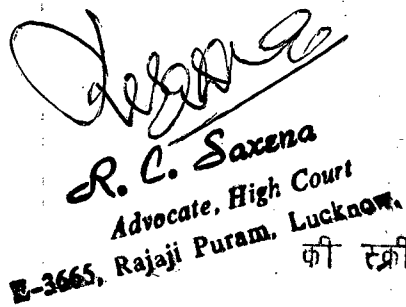 R. C. Saxena
Advocate, High Court
E-3665, Rajaji Puram, Lucknow.
की